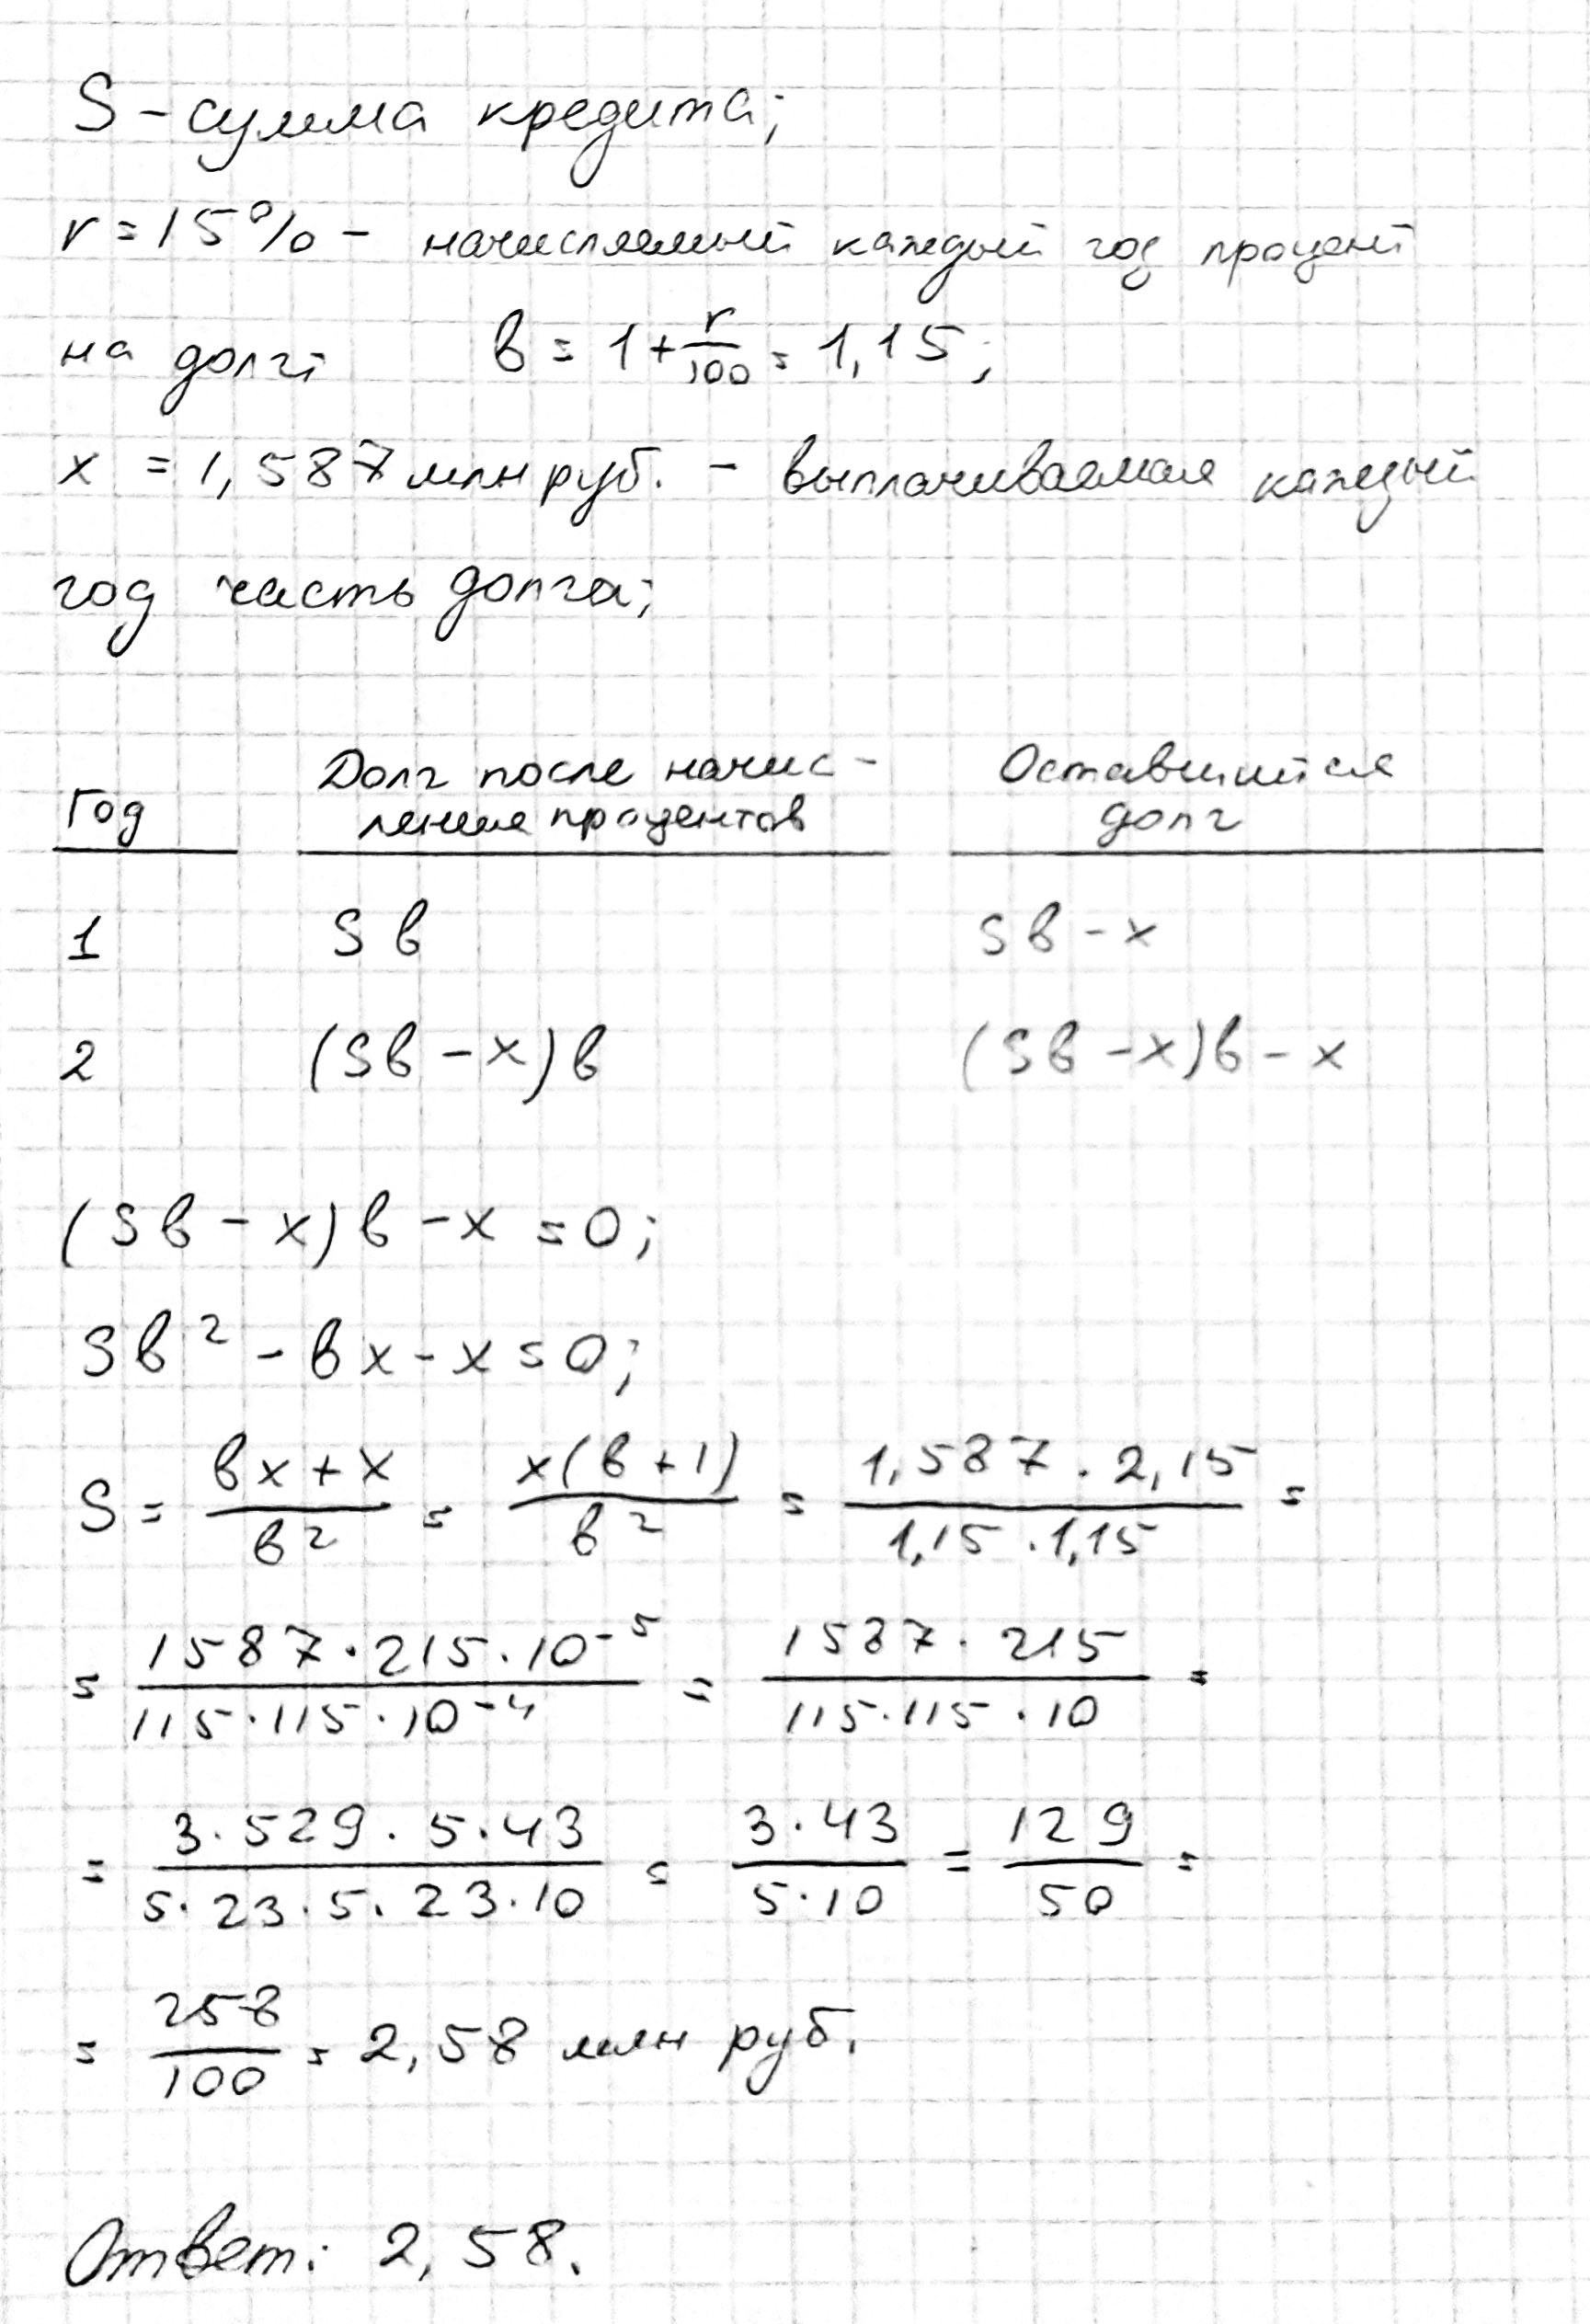 S – сумма кредита;
r = 15% – начисляемый каждый год процент
на долг; b = 1 + r/100 = 1,15;
x = 1,587 млн руб. – выплачиваемая каждый
год часть долга;
Год Долг после начис- Оставшийся
ления процентов долг
1 Sb Sb - x
2 (Sb - x)b (Sb - x)b - x
(Sb - x)b - x = 0;
Sb² - bx - x = 0;
S = (bx + x)/b² = x(b + 1)/b² = (1,587 · 2,15)/(1,15 · 1,15) =
= (1587 · 215 · 10⁻⁵)/(115 · 115 · 10⁻⁴) = (1587 · 215)/(115 · 115 · 10) =
= (3 · 529 · 5 · 43)/(5 · 23 · 5 · 23 · 10) = (3 · 43)/(5 · 10) = 129/50 =
= 258/100 = 2,58 млн руб.
Ответ: 2,58.